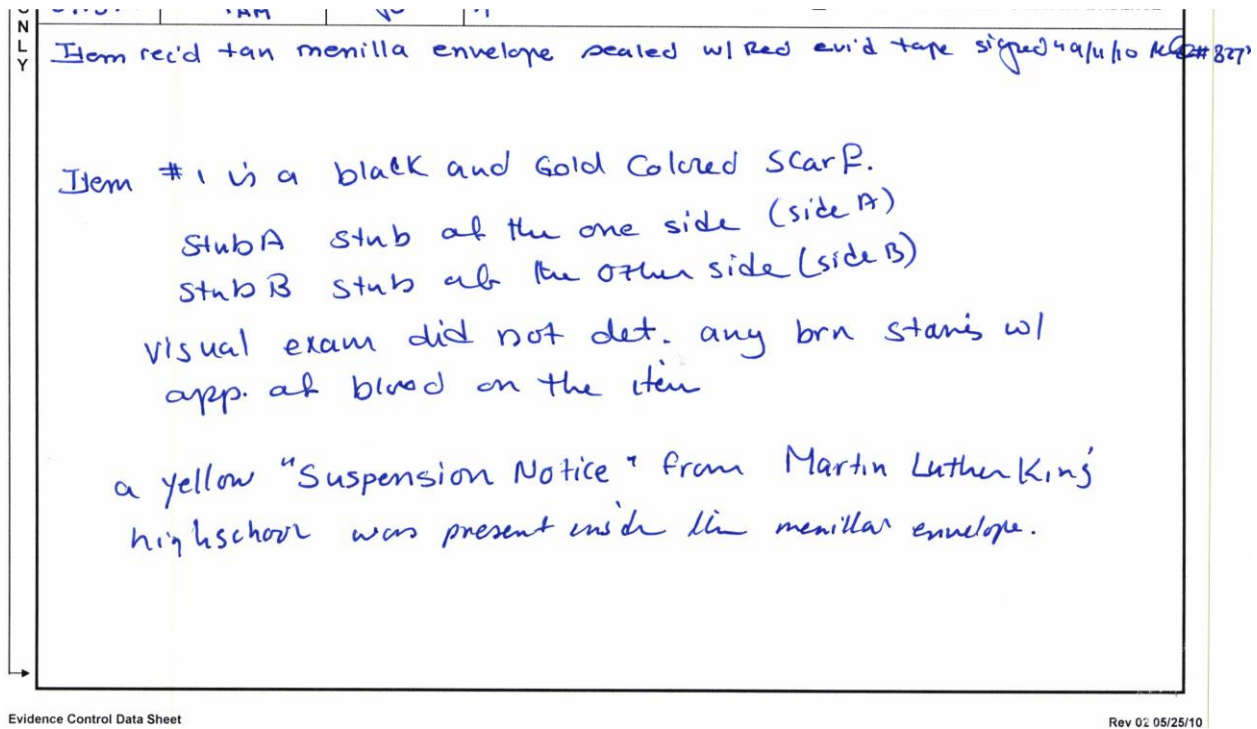 O
N
L
Y
Item rec'd tan menilla envelope sealed w/ Red evid tape signed "9/11/10 #827"
Item #1 is a black and Gold Colored Scarf.
Stub A stub of the one side (side A)
Stub B stub of the other side (side B)
visual exam did not det. any brn stains w/
app. of blood on the item
a yellow "Suspension Notice" from Martin Luther King
highschool was present inside the menillar envelope.
Evidence Control Data Sheet
Rev 02 05/25/10